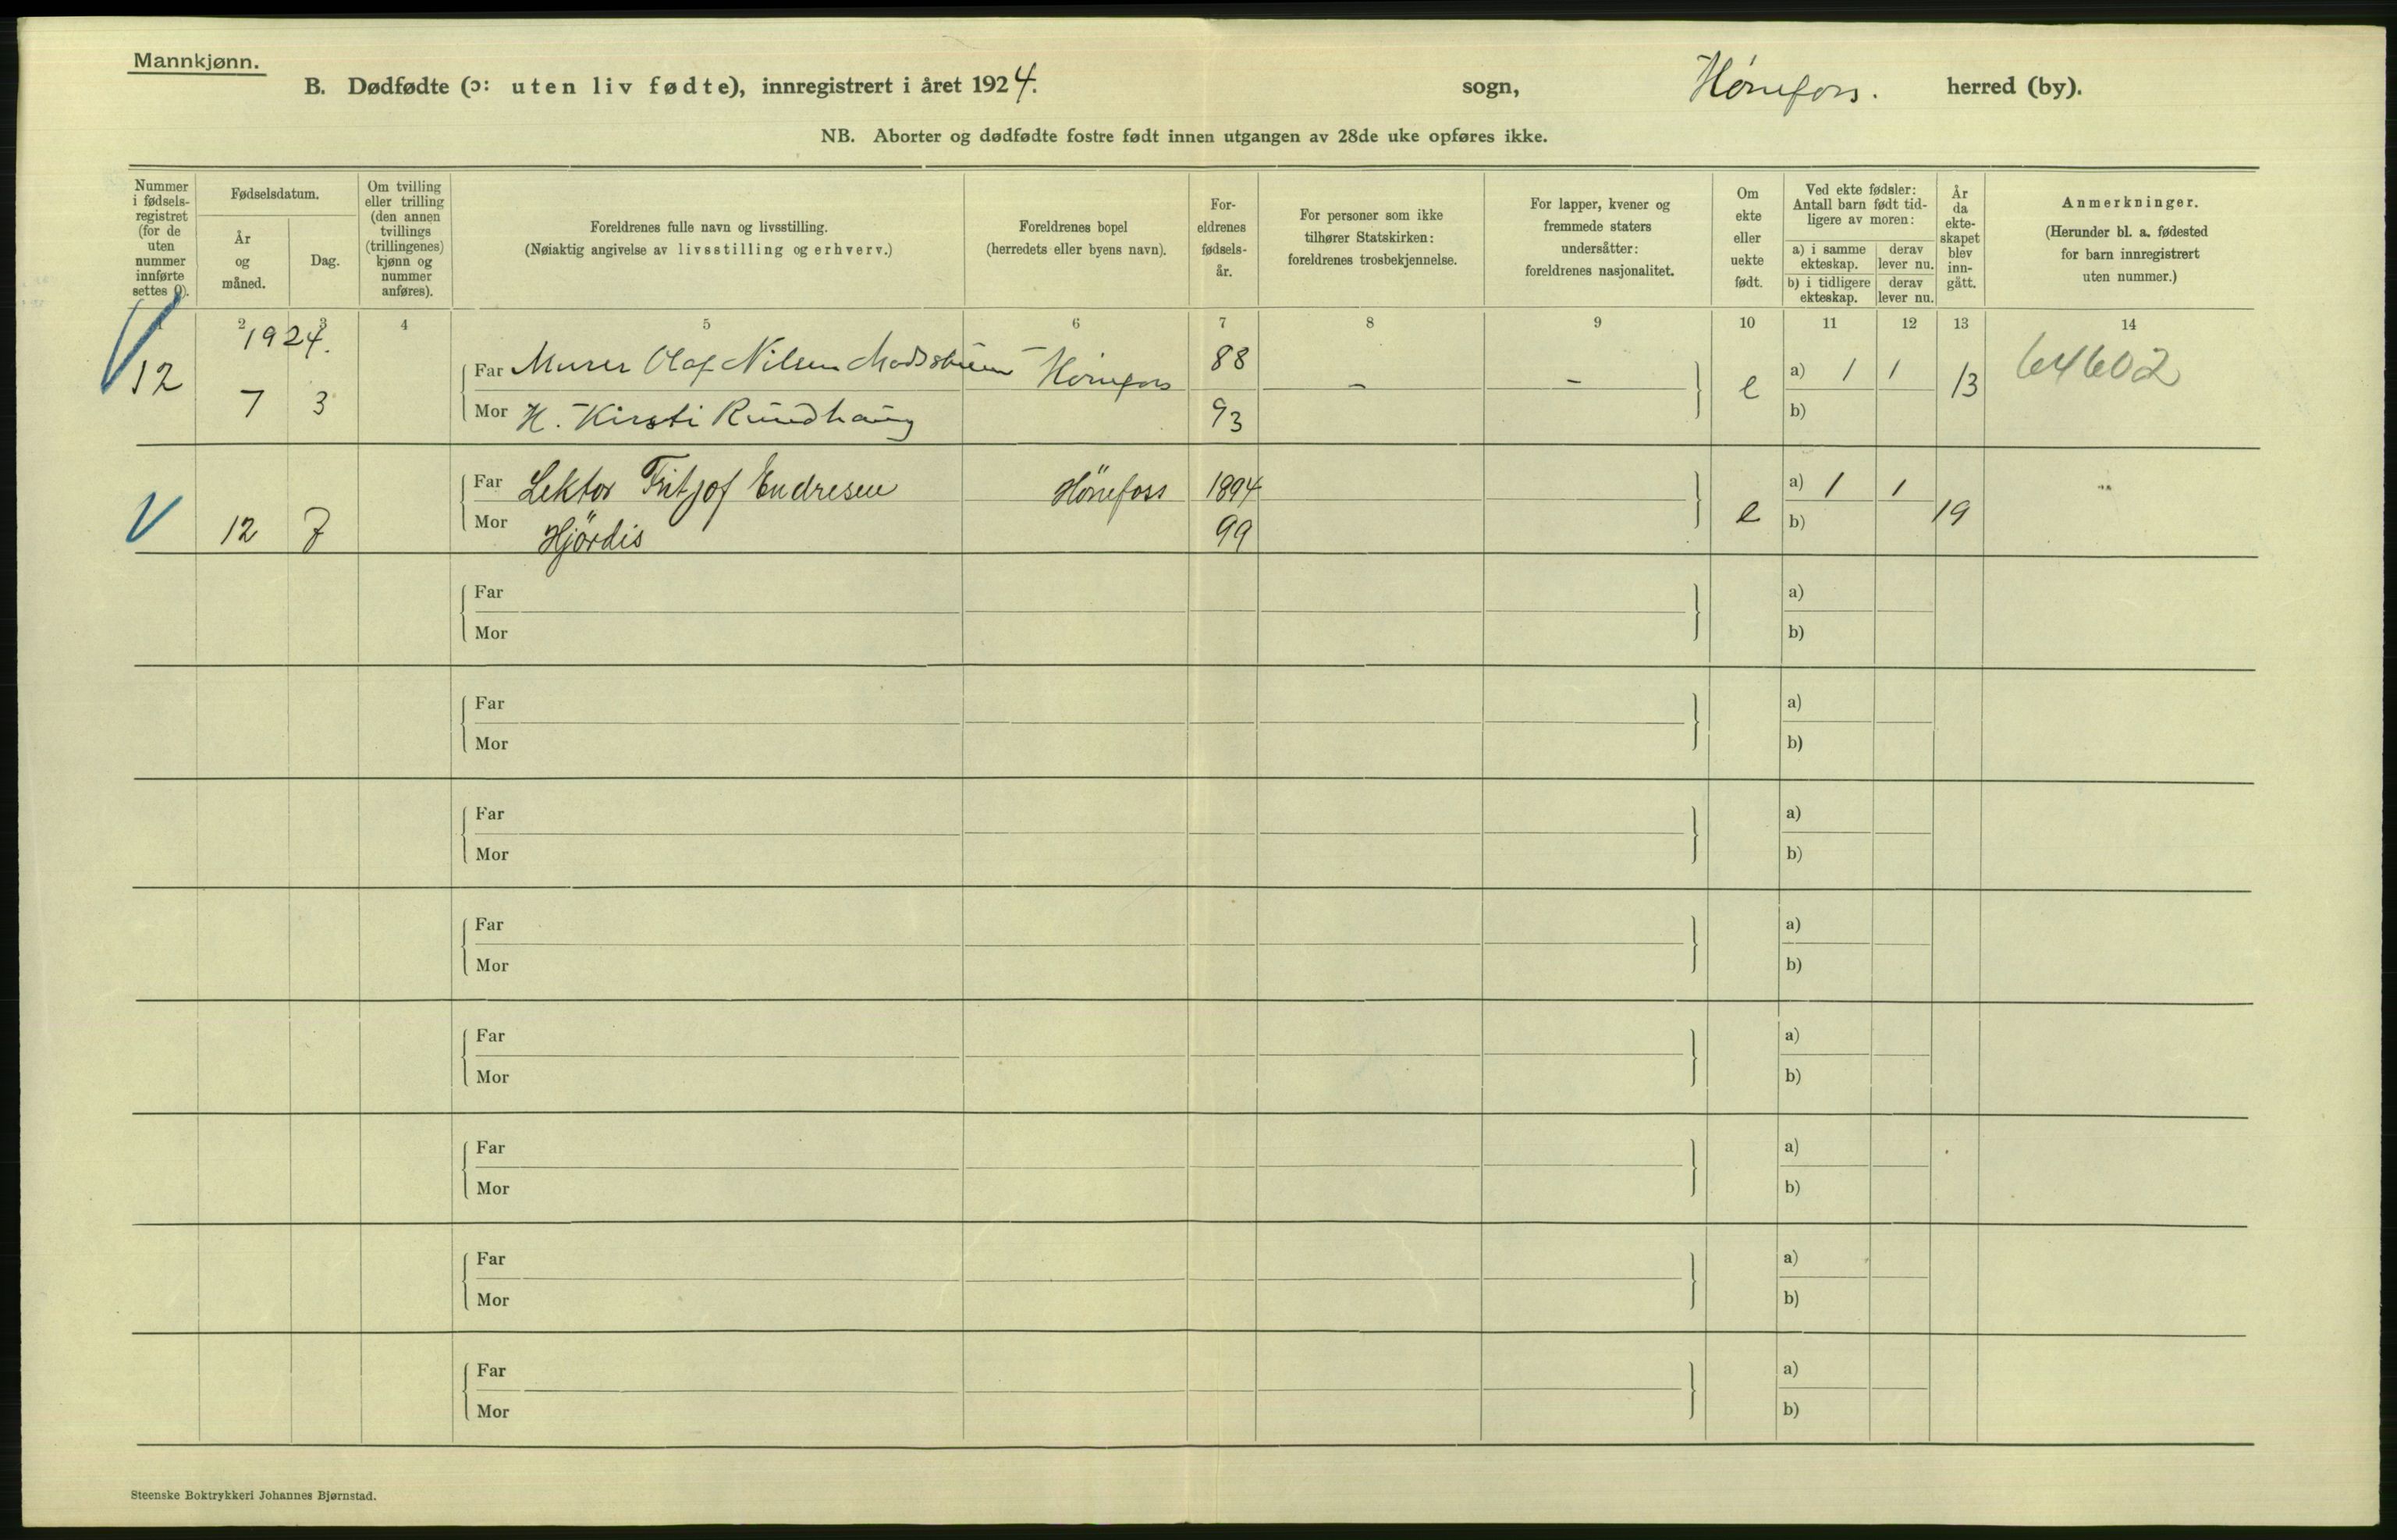 Mannkjønn.
B. Dødfødte (ɔ: uten liv fødte), innregistrert i året 1924. sogn, Hønefoss. herred (by).
NB. Aborter og dødfødte fostre født innen utgangen av 28de uke opføres ikke.
Nummer i fødsels-registret (for de uten nummer innførte settes 0).
Fødselsdatum.
År og måned.
Dag.
Om tvilling eller trilling (den annen tvillings (trillingenes) kjønn og nummer anføres).
Foreldrenes fulle navn og livsstilling.
(Nøiaktig angivelse av livsstilling og erhverv.)
Foreldrenes bopel
(herredets eller byens navn).
For-eldrenes fødsels-år.
For personer som ikke tilhører Statskirken: foreldrenes trosbekjennelse.
For lapper, kvener og fremmede staters undersåtter: foreldrenes nasjonalitet.
Om ekte eller uekte født.
Ved ekte fødsler: Antall barn født tid-ligere av moren:
a) i samme ekteskap. derav lever nu.
b) i tidligere ekteskap. derav lever nu.
År da ekte-skapet blev inn-gått.
Anmerkninger.
(Herunder bl. a. fødested for barn innregistrert uten nummer.)
1 2 3 4 5 6 7 8 9 10 11 12 13 14
1924.
12 7 3 Far Murer Olaf Nilsen Hønefoss 88 – – e a) 1 1 13 64602
Mor H. Kirsti Rundhaug 93 b)
12 7 Far Lektor Fritjof Endresen Hönefoss 1894 e a) 1 1 19 "
Mor Hjördis 99 b)
Far a)
Mor b)
Far a)
Mor b)
Far a)
Mor b)
Far a)
Mor b)
Far a)
Mor b)
Far a)
Mor b)
Far a)
Mor b)
Far a)
Mor b)
Steenske Boktrykkeri Johannes Bjørnstad.